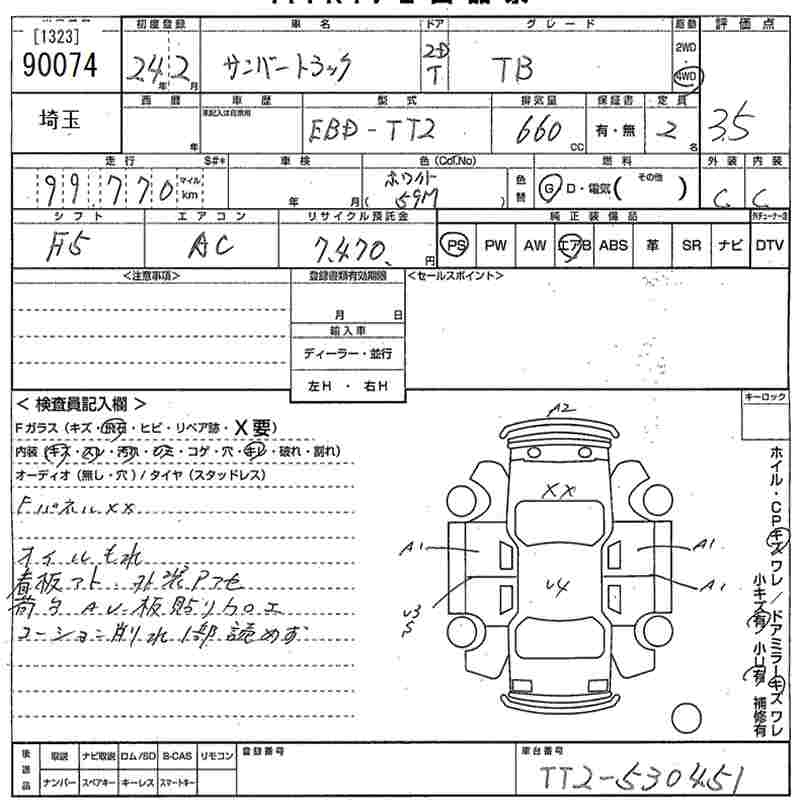 [1323]
90074
初度登録 車名 ドア グレード 駆動 評価点
24年2月 サンバートラック 2D T TB 2WD 4WD 3.5
埼玉
西暦 車歴 型式 排気量 保証書 定員
年 未記入は自家用 EBD-TT2 660cc 有・無 2名
走行 S#* 車検 色(Col.No) 燃料 外装 内装
99,770 マイル km 年 月 ホワイト ( 59M ) 色替 G D・電気( その他 ) C C
シフト エアコン リサイクル預託金 純正装備品
F5 AC 7,470円 PS PW AW エアB ABS 革 SR ナビ DTV
<注意事項> 登録書類有効期限 <セールスポイント>
月 日
輸入車
ディーラー・並行
左H ・ 右H
< 検査員記入欄 > キーロック
Fガラス(キズ・飛石・ヒビ・リペア跡・X要)
内装(キズ・スレ・汚れ・シミ・コゲ・穴・キレ・破れ・割れ)
オーディオ(無し・穴)/タイヤ(スタッドレス)
FパネルXX
オイルもれ
看板アト・外装Pアセ
荷台AU・板貼リカロエ
コーション削れ1部読めず
A2
XX
A1 A1
U4 A1
U3
S
ホイル・CPキズワレ/ドアミラーキズワレ
小キズ有 小U有 補修有
後送品 取説 ナビ取説 ロム/SD B-CAS リモコン 登録番号 車台番号
ナンバー スペアキー キーレス スマートキー TT2-530451